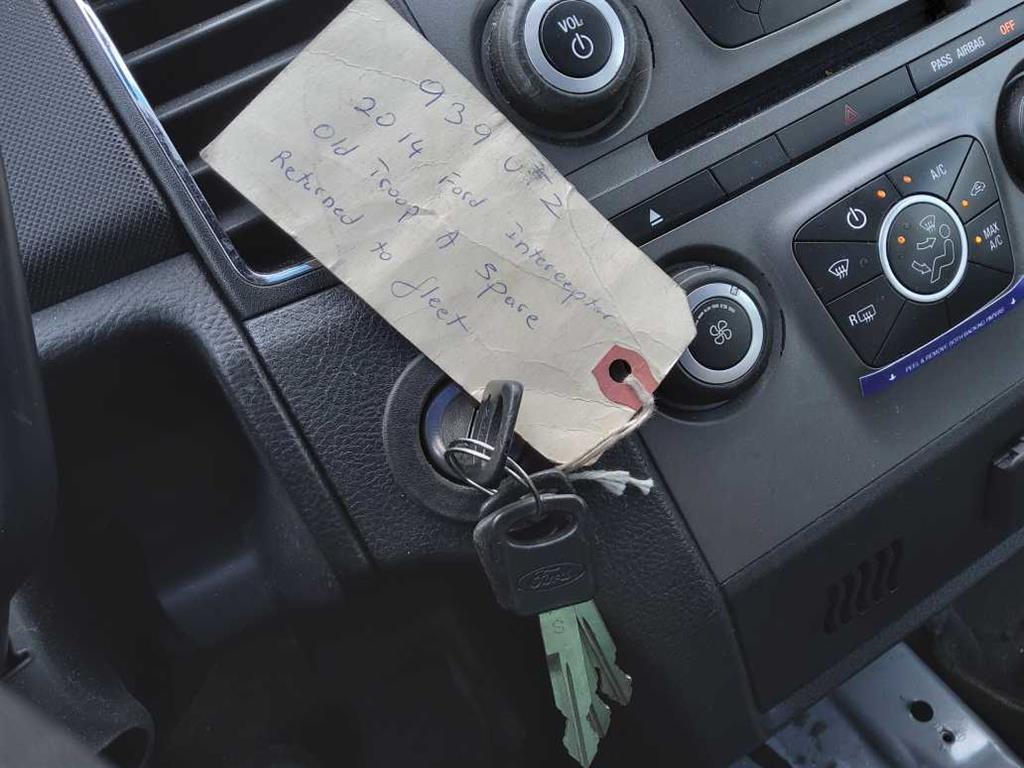 939 U#2
2014 Ford Interceptor
Old Troop A Spare
Returned to fleet
VOL
PASS AIRBAG OFF
A/C
MAX
A/C
R
PEEL & REMOVE BOTH BACKING PAPERS
Ford
S